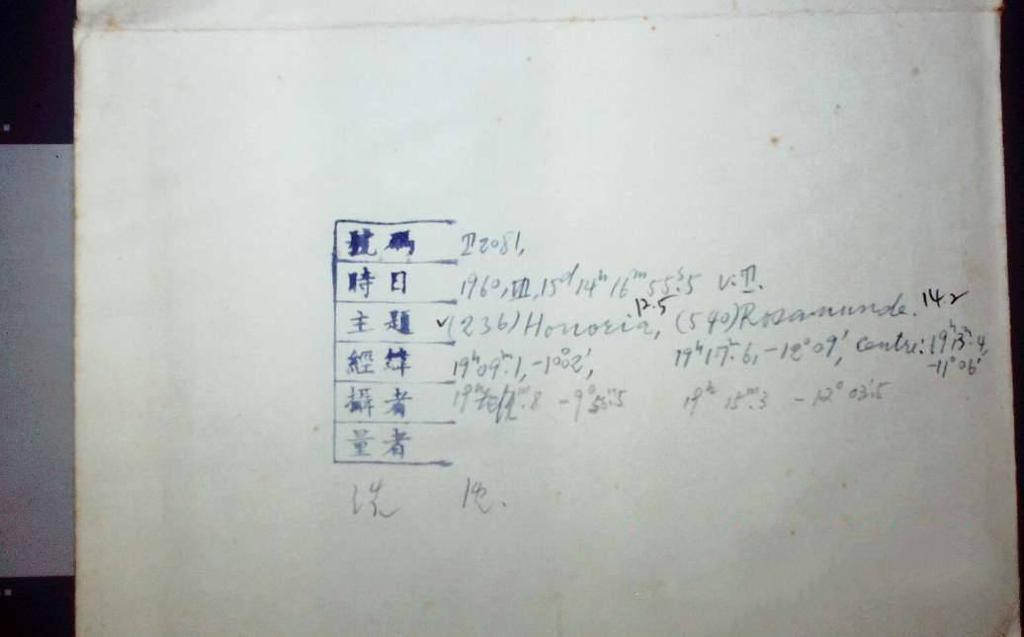 號碼 II2081,
時日 1960, VII, 15ᵈ 14ʰ 16ᵐ 55ˢ.5 U.T.
主題 √(236) Honoria, 12.5 (540) Rosamunde. 14.2
經緯 19ʰ09ᵐ.1, -10°02', 19ʰ17ᵐ.6, -12°09', centre: 19ʰ13ᵐ.4, -11°06'
攝者 19ʰ .8 -9°55'.5 19ʰ 15ᵐ.3 -12°03'.5
量者
洗